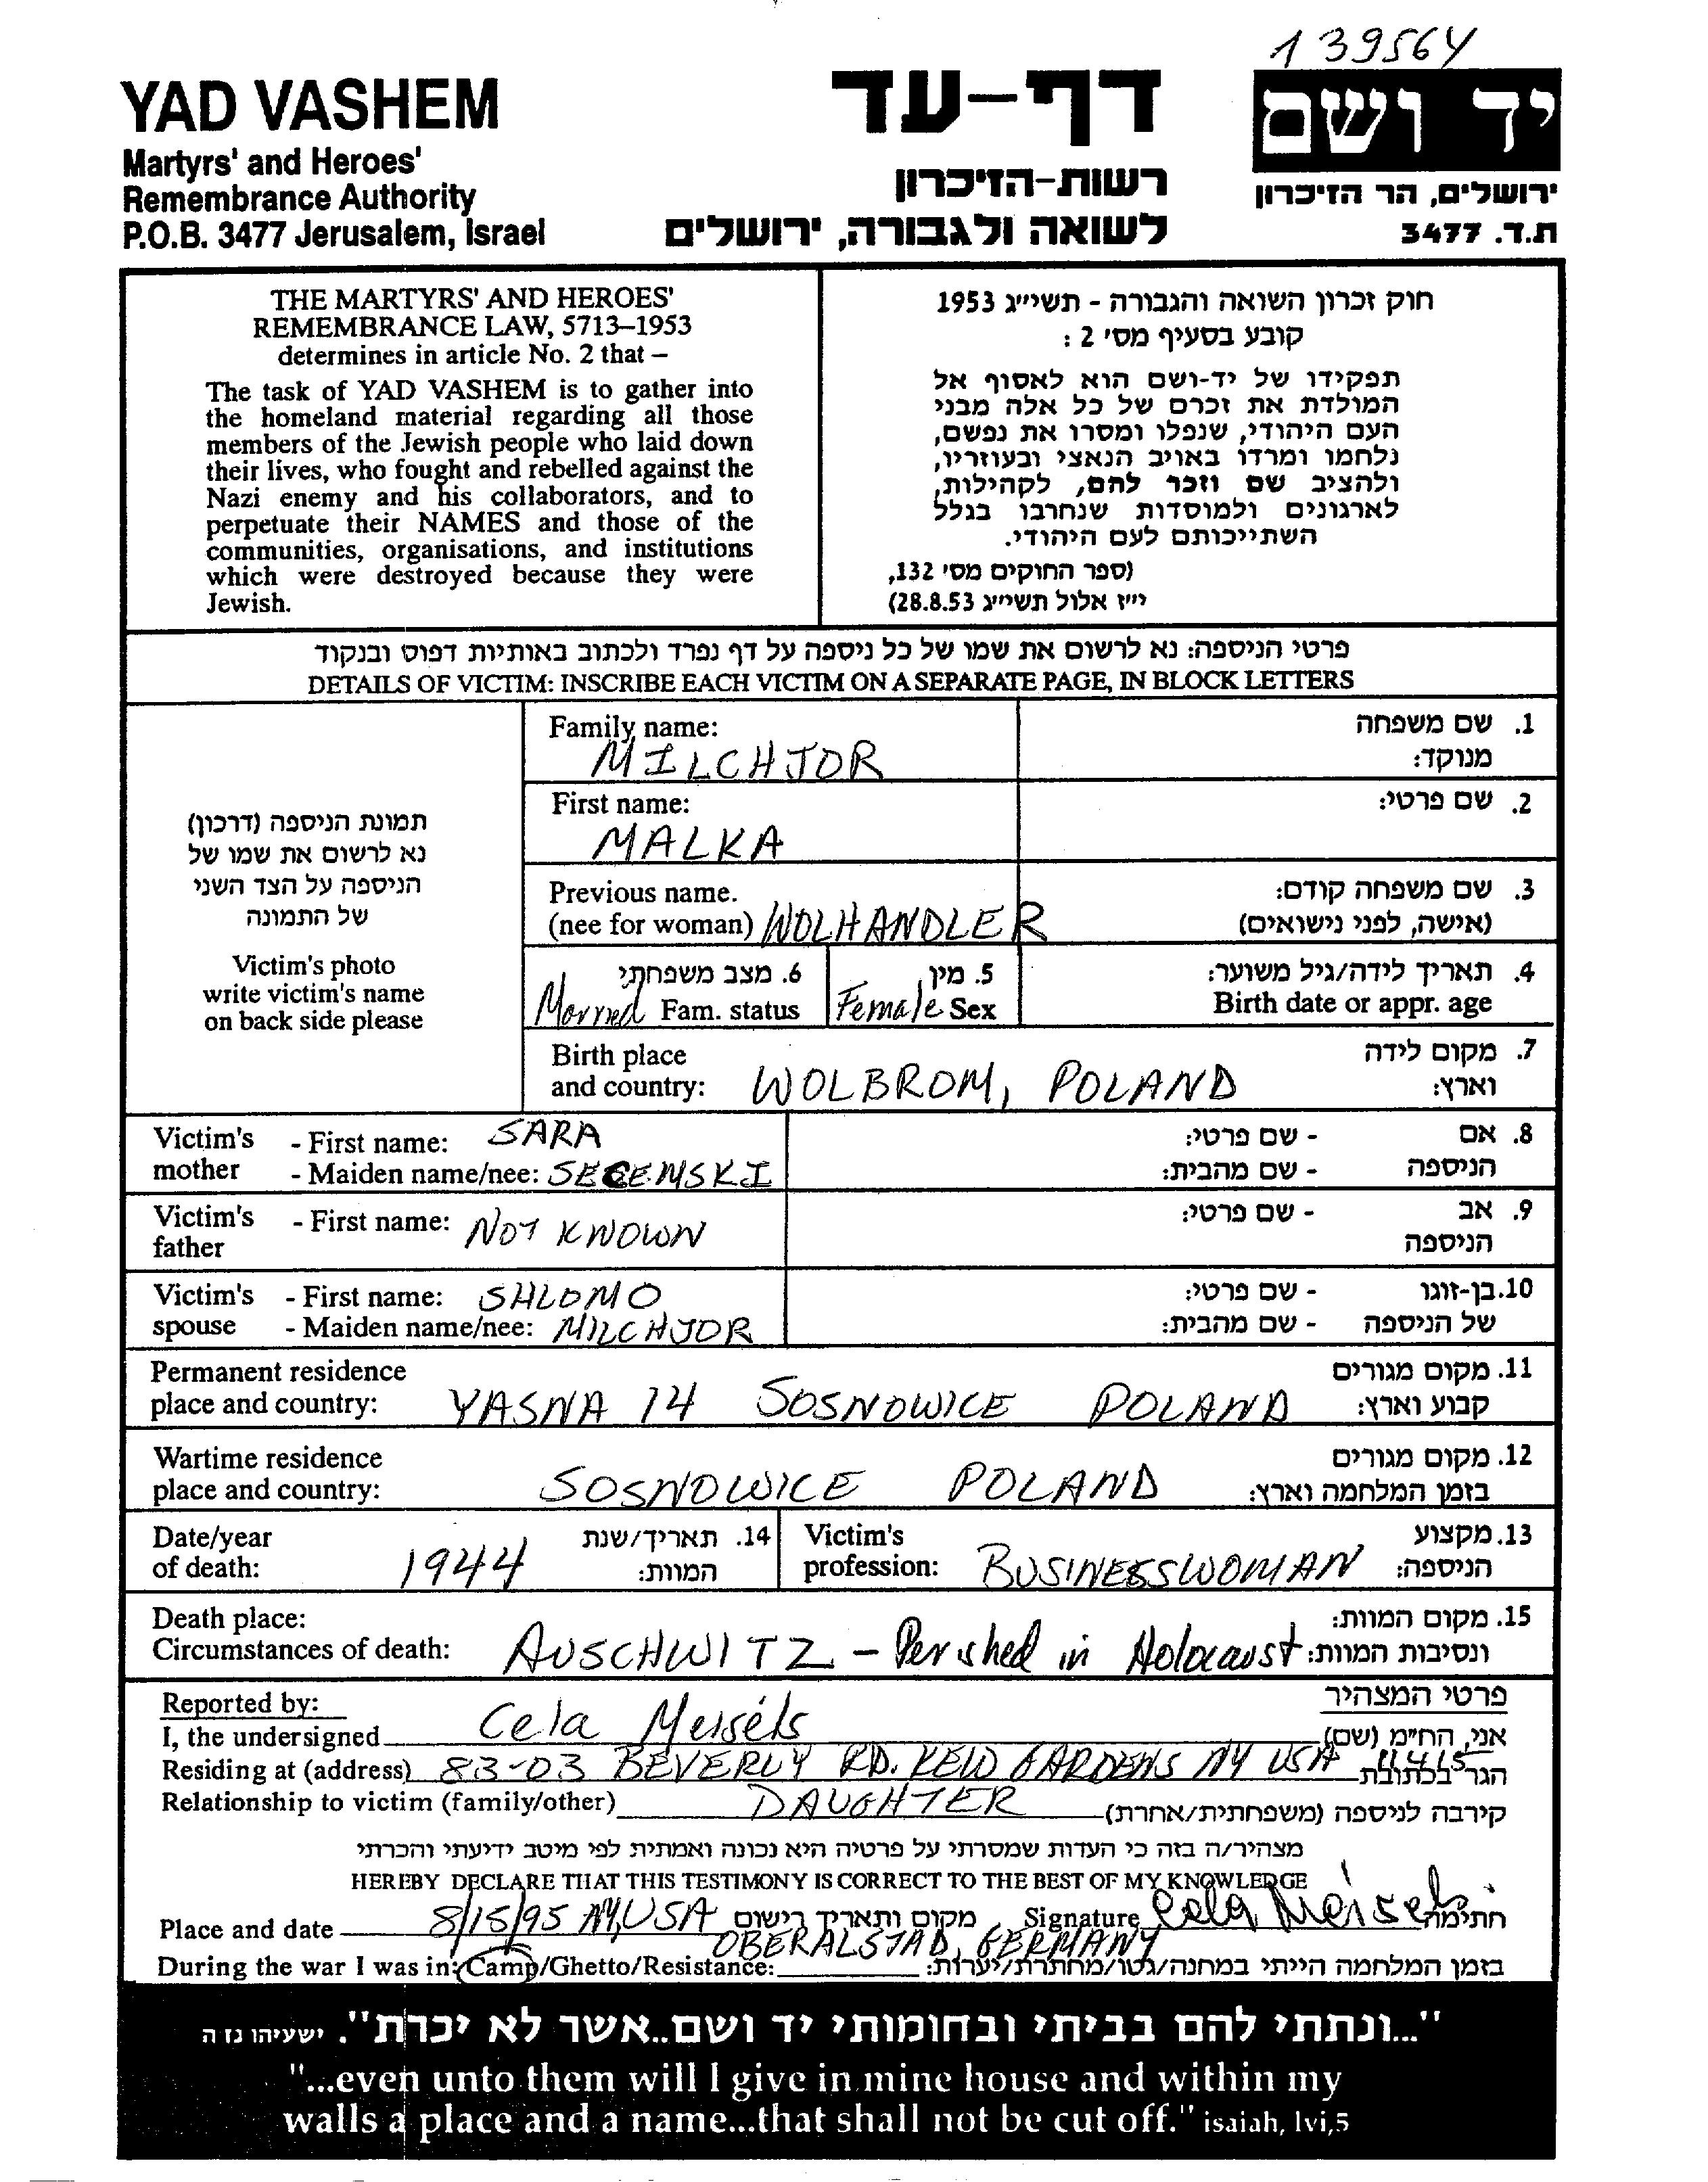 139564
YAD VASHEM
Martyrs' and Heroes'
Remembrance Authority
P.O.B. 3477 Jerusalem, Israel
דף-עד
רשות-הזיכרון
לשואה ולגבורה, ירושלים
יד ושם
ירושלים, הר הזיכרון
ת.ד. 3477
THE MARTYRS' AND HEROES'
REMEMBRANCE LAW, 5713–1953
determines in article No. 2 that –
The task of YAD VASHEM is to gather into
the homeland material regarding all those
members of the Jewish people who laid down
their lives, who fought and rebelled against the
Nazi enemy and his collaborators, and to
perpetuate their NAMES and those of the
communities, organisations, and institutions
which were destroyed because they were
Jewish.
חוק זכרון השואה והגבורה - תשי״ג 1953
קובע בסעיף מס׳ 2 :
תפקידו של יד-ושם הוא לאסוף אל
המולדת את זכרם של כל אלה מבני
העם היהודי, שנפלו ומסרו את נפשם,
נלחמו ומרדו באויב הנאצי ובעוזריו,
ולהציב שם וזכר להם, לקהילות,
לארגונים ולמוסדות שנחרבו בגלל
השתייכותם לעם היהודי.
(ספר החוקים מס׳ 132,
י״ז אלול תשי״ג 28.8.53)
פרטי הניספה: נא לרשום את שמו של כל ניספה על דף נפרד ולכתוב באותיות דפוס ובנקוד
DETAILS OF VICTIM: INSCRIBE EACH VICTIM ON A SEPARATE PAGE, IN BLOCK LETTERS
תמונת הניספה (דרכון)
נא לרשום את שמו של
הניספה על הצד השני
של התמונה
Victim's photo
write victim's name
on back side please
Family name: 1. שם משפחה
MILCHJOR מנוקד:
First name: 2. שם פרטי:
MALKA
Previous name. 3. שם משפחה קודם:
(nee for woman) WOLHANDLER (אישה, לפני נישואים)
6. מצב משפחתי 5. מין 4. תאריך לידה/גיל משוער:
Married Fam. status Female Sex Birth date or appr. age
Birth place 7. מקום לידה
and country: WOLBROM, POLAND וארץ:
Victim's - First name: SARA - שם פרטי: 8. אם
mother - Maiden name/nee: SECEMSKI - שם מהבית: הניספה
Victim's - First name: NOT KNOWN - שם פרטי: 9. אב
father הניספה
Victim's - First name: SHLOMO - שם פרטי: 10. בן-זוגו
spouse - Maiden name/nee: MILCHJOR - שם מהבית: של הניספה
Permanent residence 11. מקום מגורים
place and country: YASNA 14 SOSNOWICE POLAND קבוע וארץ:
Wartime residence 12. מקום מגורים
place and country: SOSNOWICE POLAND בזמן המלחמה וארץ:
Date/year 14. תאריך/שנת Victim's 13. מקצוע
of death: 1944 המוות: profession: BUSINESSWOMAN הניספה:
Death place: 15. מקום המוות:
Circumstances of death: AUSCHWITZ - Perished in Holocaust ונסיבות המוות:
Reported by: פרטי המצהיר
I, the undersigned Cela Meisels אני, הח״מ (שם)
Residing at (address) 83-03 BEVERLY RD. KEW GARDENS NY USA 11415 הגר בכתובת
Relationship to victim (family/other) DAUGHTER קירבה לניספה (משפחתית/אחרת)
מצהיר/ה בזה כי העדות שמסרתי על פרטיה היא נכונה ואמתית לפי מיטב ידיעתי והכרתי
HEREBY DECLARE THAT THIS TESTIMONY IS CORRECT TO THE BEST OF MY KNOWLEDGE
Place and date 8/15/95 NY, USA מקום ותאריך רישום Signature Cela Meisels חתימה
OBERALSTAD, GERMANY
During the war I was in: Camp/Ghetto/Resistance: בזמן המלחמה הייתי במחנה/גטו/מחתרת/יערות:
"...ונתתי להם בביתי ובחומותי יד ושם..אשר לא יכרת". ישעיהו נז ה
"...even unto them will I give in mine house and within my
walls a place and a name...that shall not be cut off." isaiah, lvi,5